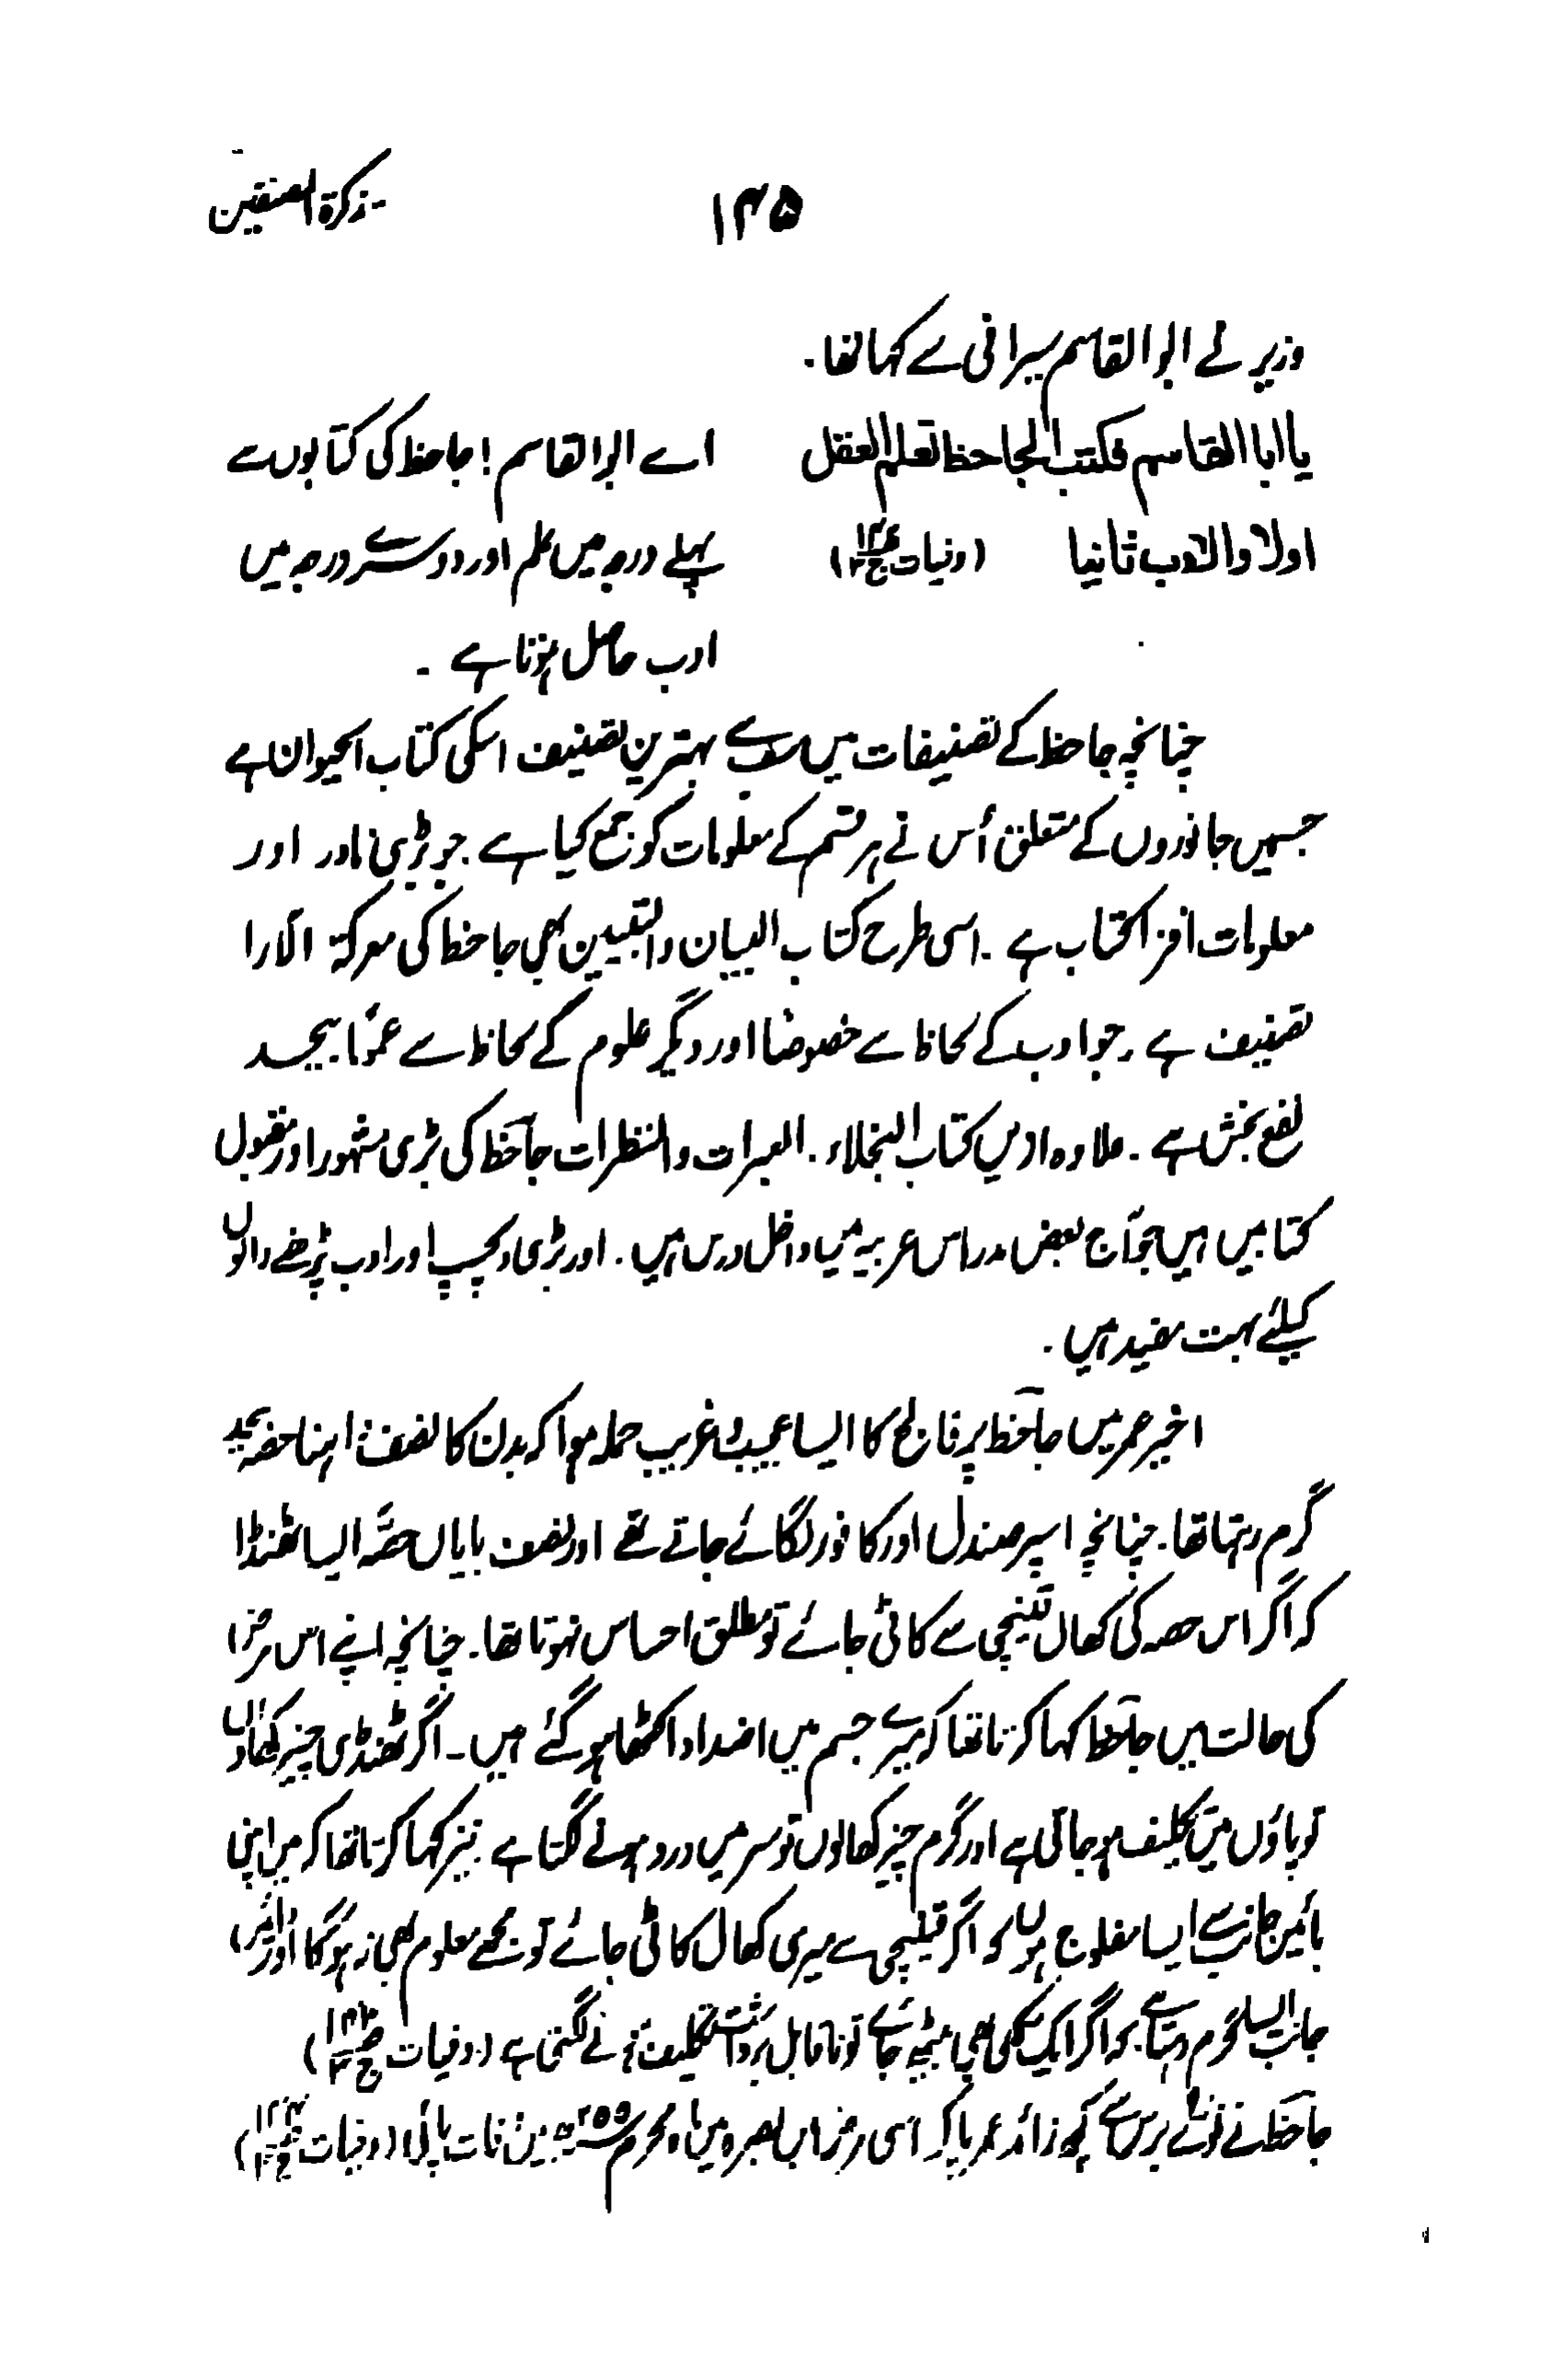 تذکرة المصنفین
۱۳۵
وزیر نے ابوالقاسم سیرافی سے کہا تھا.
یا ابا القاسم فکتب الجاحظ تعلم العقل
اولا والادب ثانیا (وفیات ج۲)
اے ابوالقاسم! جاحظ کی کتابوں سے
پہلے درجہ میں علم اور دوسرے درجہ میں
ادب حاصل ہوتا ہے ۔
چنانچہ جاحظ کے تصنیفات میں سب سے بہترین تصنیف اسکی کتاب الحیوان ہے
جسمیں جانوروں کے متعلق اُس نے ہر قسم کے معلومات کو جمع کیا ہے. جو بڑی نادر اور
معلومات افزا کتاب ہے ۔ اسی طرح کتاب البیان والتبیین بھی جاحظ کی معرکۃ الآرا
تصنیف ہے، جو ادب کے لحاظ سے خصوصًا اور دیگر علوم کے لحاظ سے عمومًا بیحد
نفع بخش ہے ۔ علاوہ ازیں کتاب البخلاء. العبرات والنظرات جاحظ کی بڑی مشہور اور مقبول
کتابیں ہیں جو آج بعض مدارس عربیہ میں داخل درس ہیں. اور بڑی دلچسپ اور ادب پڑھنے والوں
کیلئے بہت مفید ہیں.
اخیر عمر میں جاحظ پر فالج کا ایسا عجیب و غریب حملہ ہوا کہ بدن کا نصف داہنا حصہ بیحد
گرم رہتا تھا. چنانچہ اسپر صندل اور کافور لگائے جاتے تھے اور نصف بایاں حصّہ ایسا ٹھنڈا
کہ اگر اس حصہ کی کھال قینچی سے کاٹی جائے تو مطلق احساس نہوتا تھا. چنانچہ اپنے اس مرض
کی حالت میں جاحظ کہا کرتا تھا کہ میرے جسم میں اضداد اکٹھا ہو گئے ہیں ۔ اگر ٹھنڈی چیز کھاؤں
تو پاؤں میں تکلیف ہو جاتی ہے اور گرم چیز کھالوں تو سر میں درد ہونے لگتا ہے. نیز کہا کرتا تھا کہ میں اپنی
بائیں جانب سے ایسا مفلوج ہوں کہ اگر قینچی سے میری کھال کاٹی جائے تو مجھے معلوم بھی نہ ہوگا اور دائیں
جانب ایسا گرم رہتا ہے کہ اگر ایک مکھی بھی بیٹھ جائے تو ناقابل برداشت تکلیف ہونے لگتی ہے (وفیات ج۲)
جاحظ نے نوّے برس سے کچھ زائد عمر پاکر اسی مرض میں بصرہ میں ماہ محرم ۲۵۵ھ میں وفات پائی (وفیات ج۲)